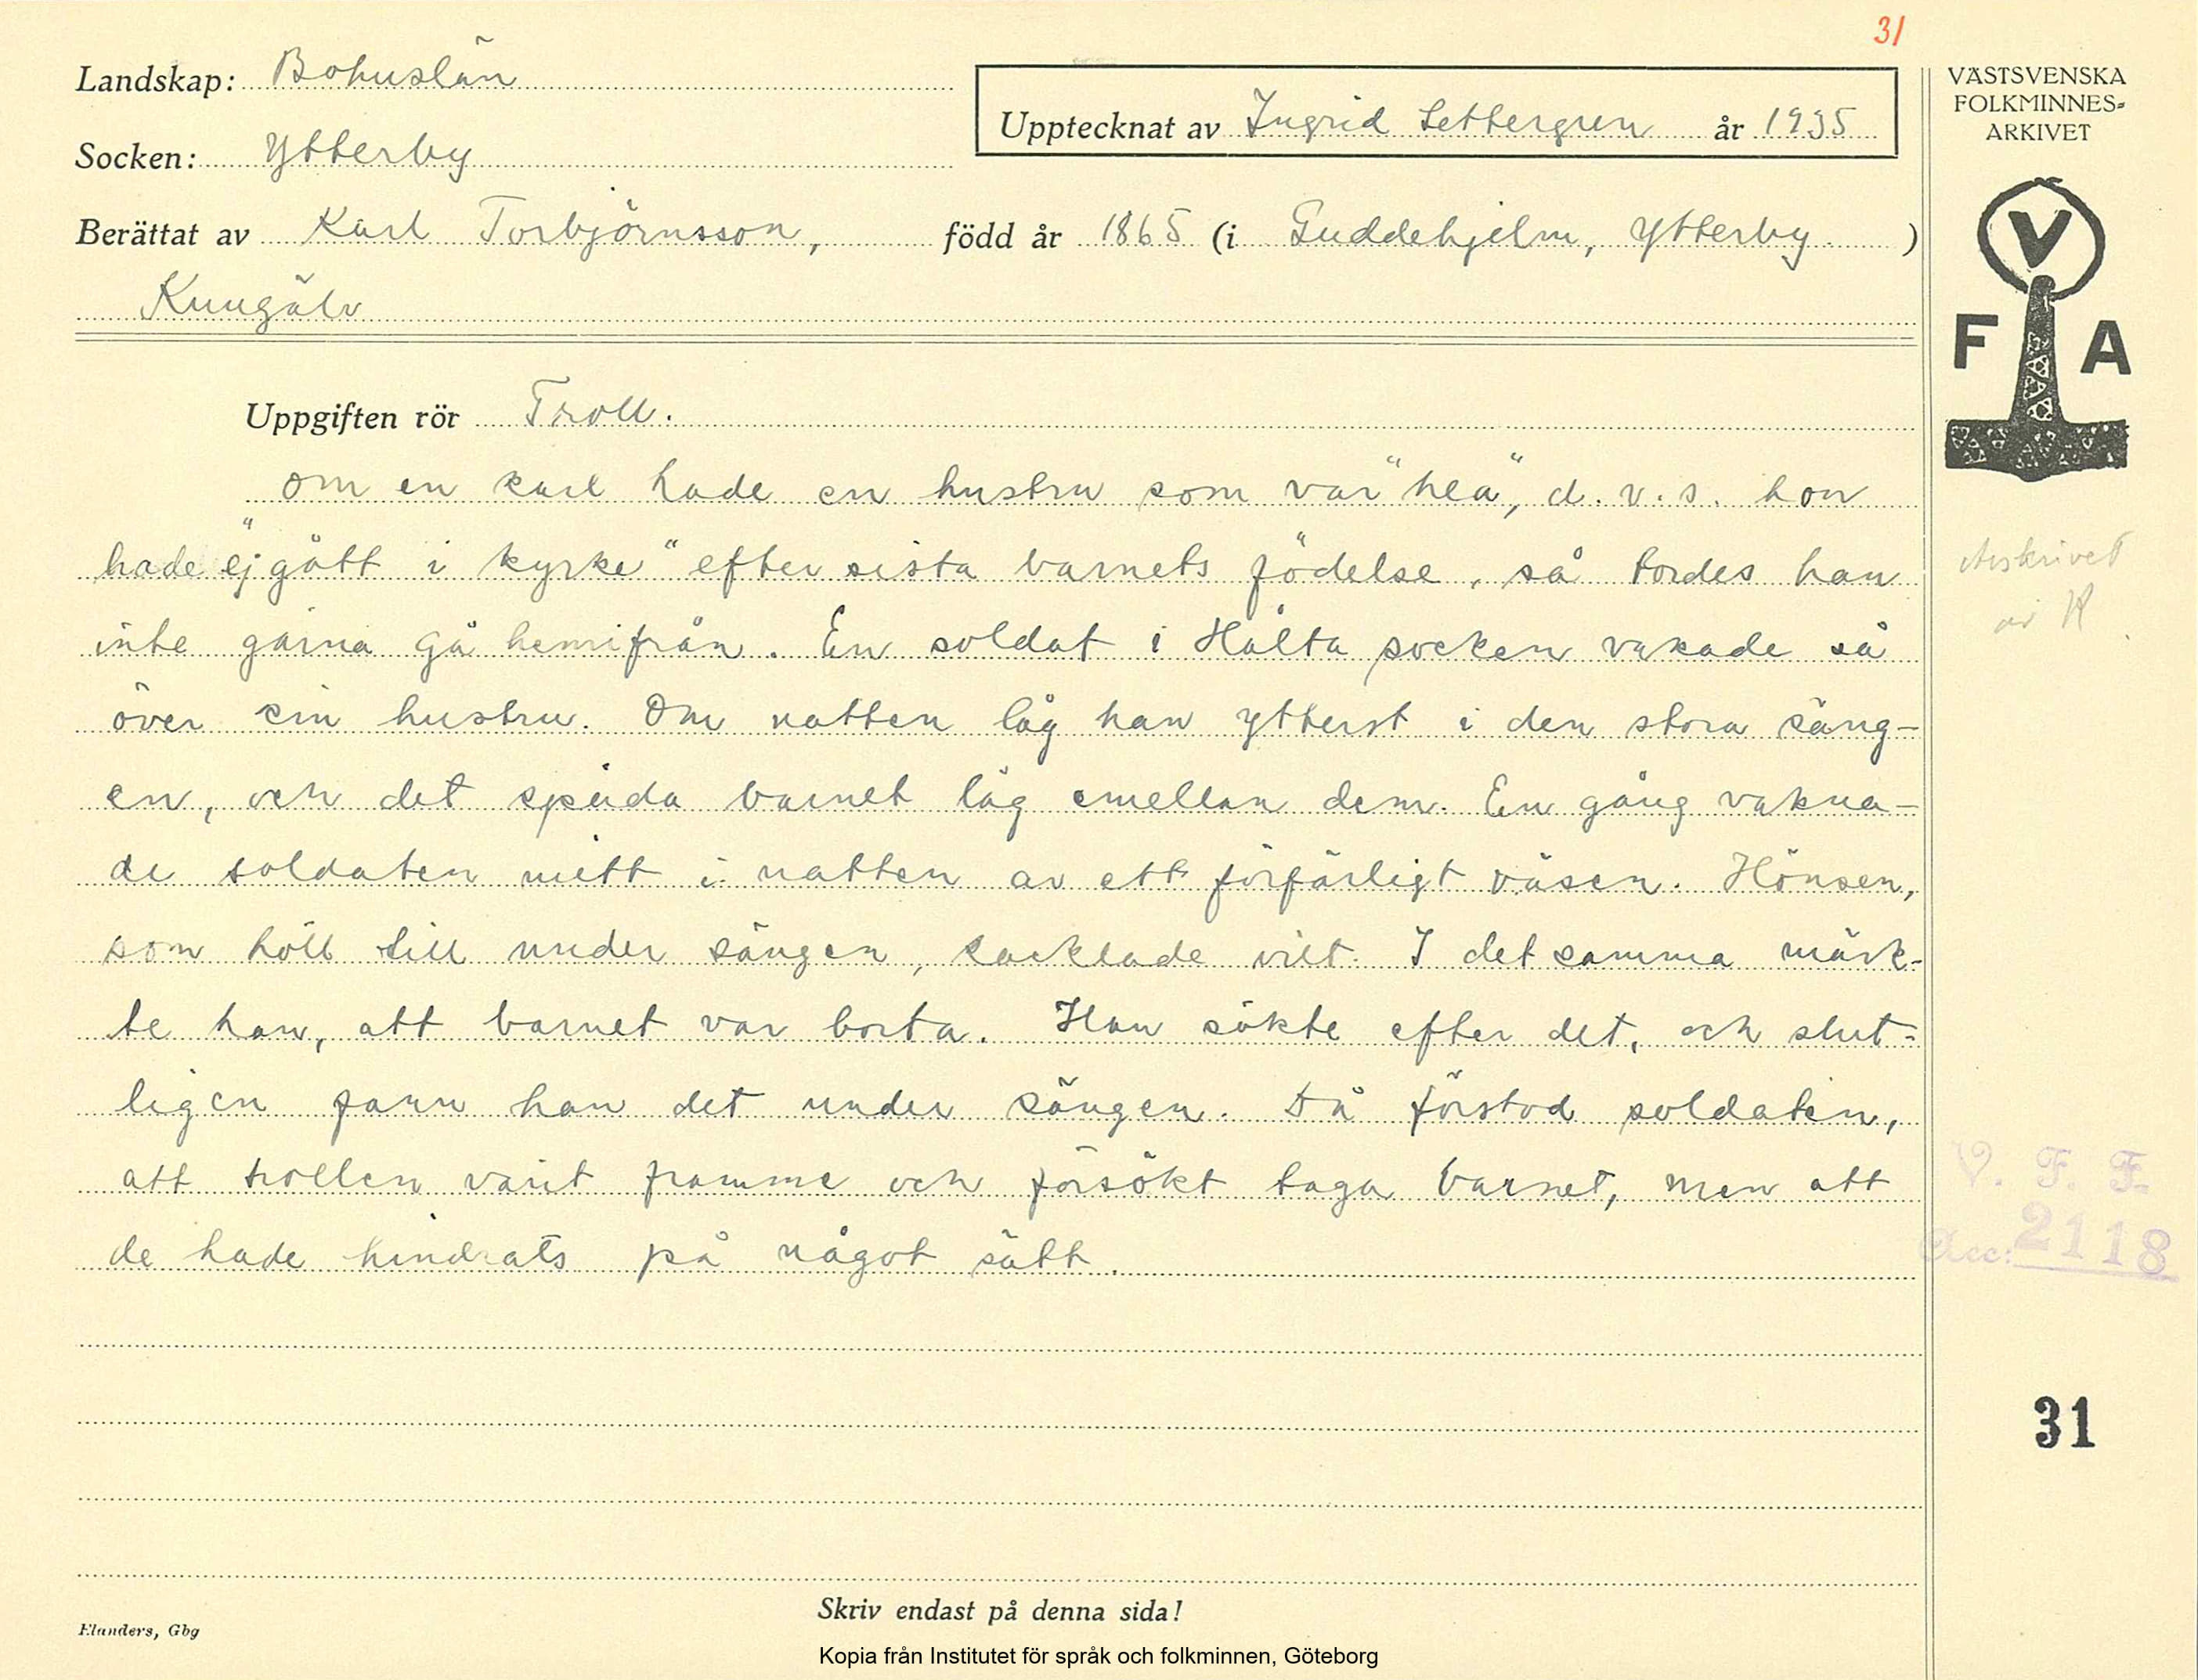 31
Landskap: Bohuslän
Upptecknat av Ingrid Settergren år 1935
Socken: Ytterby
Berättat av Karl Torbjörnsson, född år 1865 (i Guddehjelm, Ytterby )
Kungälv
VÄSTSVENSKA
FOLKMINNES-
ARKIVET
V
F A
Uppgiften rör Troll.
Om en karl hade en hustru som var "hea", d.v.s. hon
hade "ej gått i kyrke" efter sista barnets födelse, så tordes han
inte gärna gå hemifrån. En soldat i Hålta socken vakade så
över sin hustru. Om natten låg han ytterst i den stora säng-
en, och det späda barnet låg emellan dem. En gång vakna-
de soldaten mitt i natten av ett förfärligt väsen. Hönsen,
som höll till under sängen, kacklade vilt. I det samma märk-
te han, att barnet var borta. Han sökte efter det, och slut-
ligen fann han det under sängen. Då förstod soldaten,
att trollen varit framme och försökt taga barnet, men att
de hade hindrats på något sätt.
Avskrivet
av
V. F. F.
Acc: 2118
31
Skriv endast på denna sida!
Elanders, Gbg
Kopia från Institutet för språk och folkminnen, Göteborg